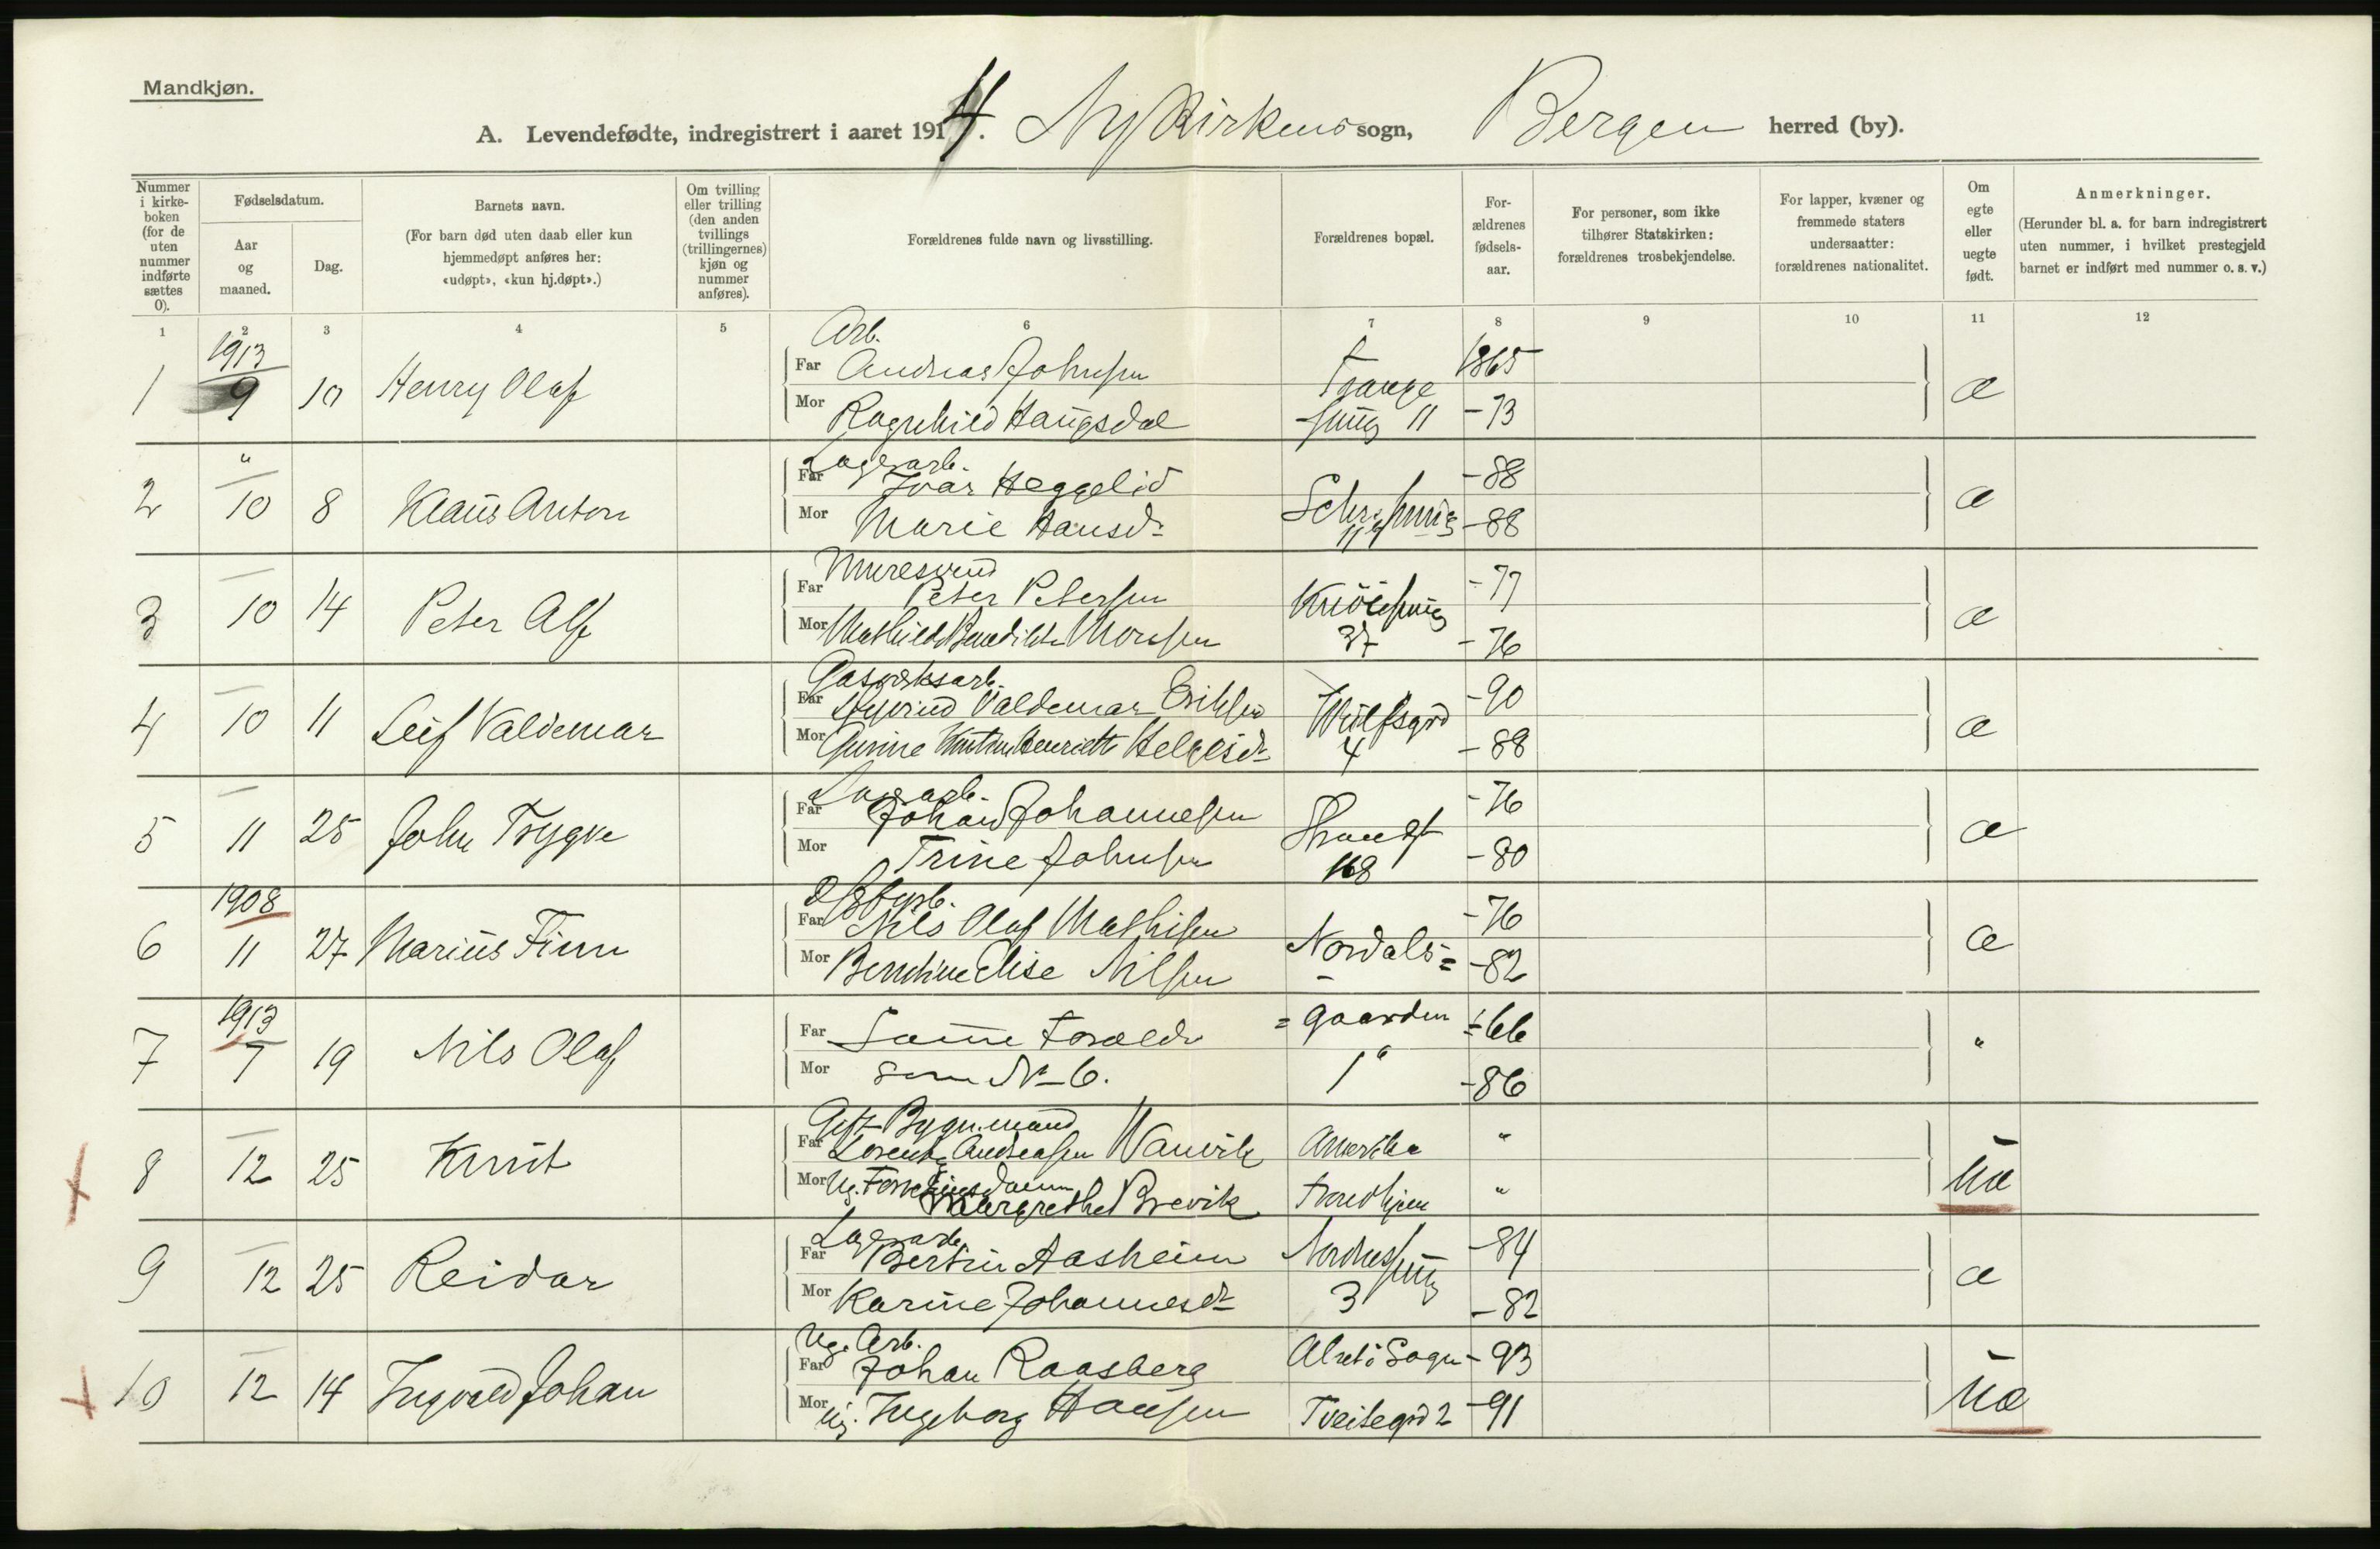 Mandkjøn.
A. Levendefødte, indregistrert i aaret 1914. Nykirkens sogn, Bergen herred (by).
Nummer i kirke-boken (for de uten nummer indførte sættes 0).
Fødselsdatum.
Aar og maaned.
Dag.
Barnets navn.
(For barn død uten daab eller kun hjemmedøpt anføres her: «udøpt», «kun hj.døpt».)
Om tvilling eller trilling (den anden tvillings (trillingernes) kjøn og nummer anføres).
Forældrenes fulde navn og livsstilling.
Forældrenes bopæl.
For-ældrenes fødsels-aar.
For personer, som ikke tilhører Statskirken: forældrenes trosbekjendelse.
For lapper, kvæner og fremmede staters undersaatter: forældrenes nationalitet.
Om egte eller uegte født.
Anmerkninger.
(Herunder bl. a. for barn indregistrert uten nummer, i hvilket prestegjeld barnet er indført med nummer o. s. v.)
1 2 3 4 5 6 7 8 9 10 11 12
1913 Arb.
1 9 10 Henry Olaf Far Andreas Johnsen Trange 1865 æ
Mor Ragnhild Haugsdal smug 11 - 73
" Lagerarb.
2 10 8 Klaus Anton Far Ivar Heggelid - 88 æ
Mor Marie Hansdr - 88
Muresvend
3 10 14 Peter Alf Far Peter Petersen Knøsesmug - 77 æ
Mor Mathilde Benedikte Monsen 37 - 76
Gasverksarb.
4 10 11 Leif Valdemar Far Øyvind Valdemar Eriksen Wulfsgrd - 90 æ
Mor Gurine Henriette Helgesdr 4 - 88
5 11 25 John Trygve Far Johan Johannesen Strandgt - 76 æ
Mor Trine Johnsen 168 - 80
1908
6 11 27 Marius Finn Far Nils Olaf Mathisen Nordals= - 76 æ
Mor Berntine Elise Nilsen - 82
1913
7 7 19 Nils Olaf Far Samme Foræld. =gaarden - 66 "
Mor som No 6. 1 - 86
Gift Bygn.mand
8 12 25 Knut Far Lorentz Andreasen Wanvik Amerika " uæ
Mor Ug. Margrethe Brevik Trondhjem "
Lagerarb.
9 12 25 Reidar Far Bertin Aasheim Nordnessmug - 84 æ
Mor Karine Johannesdr 3 - 82
Ug. Arb.
10 12 14 Ingvald Johan Far Johan Raasberg Sogn - 93 uæ
Mor Ug. Ingeborg Hansen Tveitegrd 2 - 91